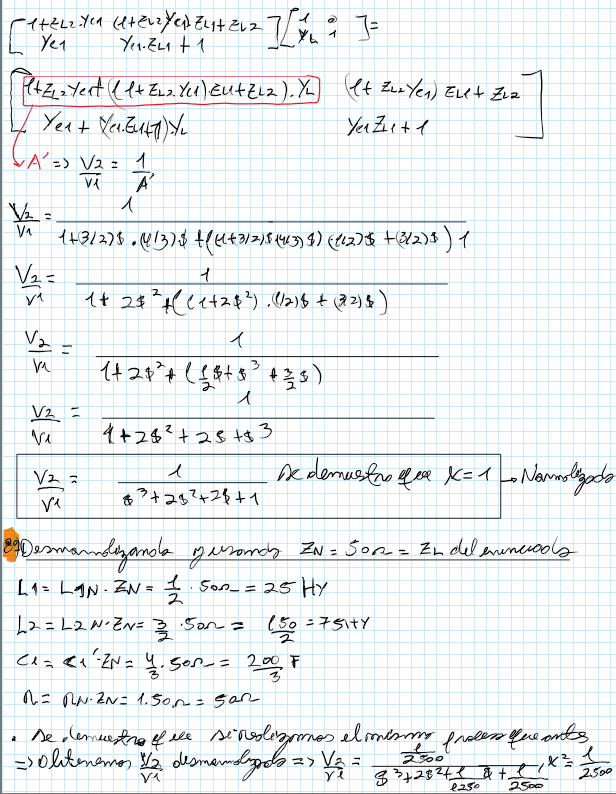 [1+ZL2.Yc1 (1+ZL2Yc1).ZL1+ZL2] [1 0] =
[Yc1 Yc1.ZL1+1] [YL 1]
[1+ZL2Yc1+((1+ZL2.Yc1)ZL1+ZL2).YL (1+ZL2Yc1)ZL1+ZL2]
[Yc1+(Yc1.ZL1+1)YL Yc1ZL1+1]
A' => V2/V1 = 1/A'
V2/V1 = 1/(1+(3/2)$.(4/3).$+((1+3/2)$(4/3)$)(1/2)$+(3/2)$)1
V2/V1 = 1/(1+2$²+((1+2$²).(1/2)$+(3/2)$)
V2/V1 = 1/(1+2$²+(1/2$+$³+3/2$)
V2/V1 = 1/(1+2$²+2$+$³
V2/V1 = 1/($³+2$²+2$+1) Se demuestra que K=1 → Normalizado
Desnormalizando y usando ZN=50Ω=ZL del enunciado
L1=L1N.ZN=1/2.50Ω=25Hy
L2=L2N.ZN=3/2.50Ω=150/2=75Hy
C1=C1'.ZN=4/3.50Ω=200/3 F
R=RN.ZN=1.50Ω=50Ω
. Se demuestra que si realizamos el mismo proceso que antes
=> Obtenemos V2/V1 desnormalizada => V2/V1 = (1/2500)/($³+2$²+1/1250 $+1/2500), K²=1/2500